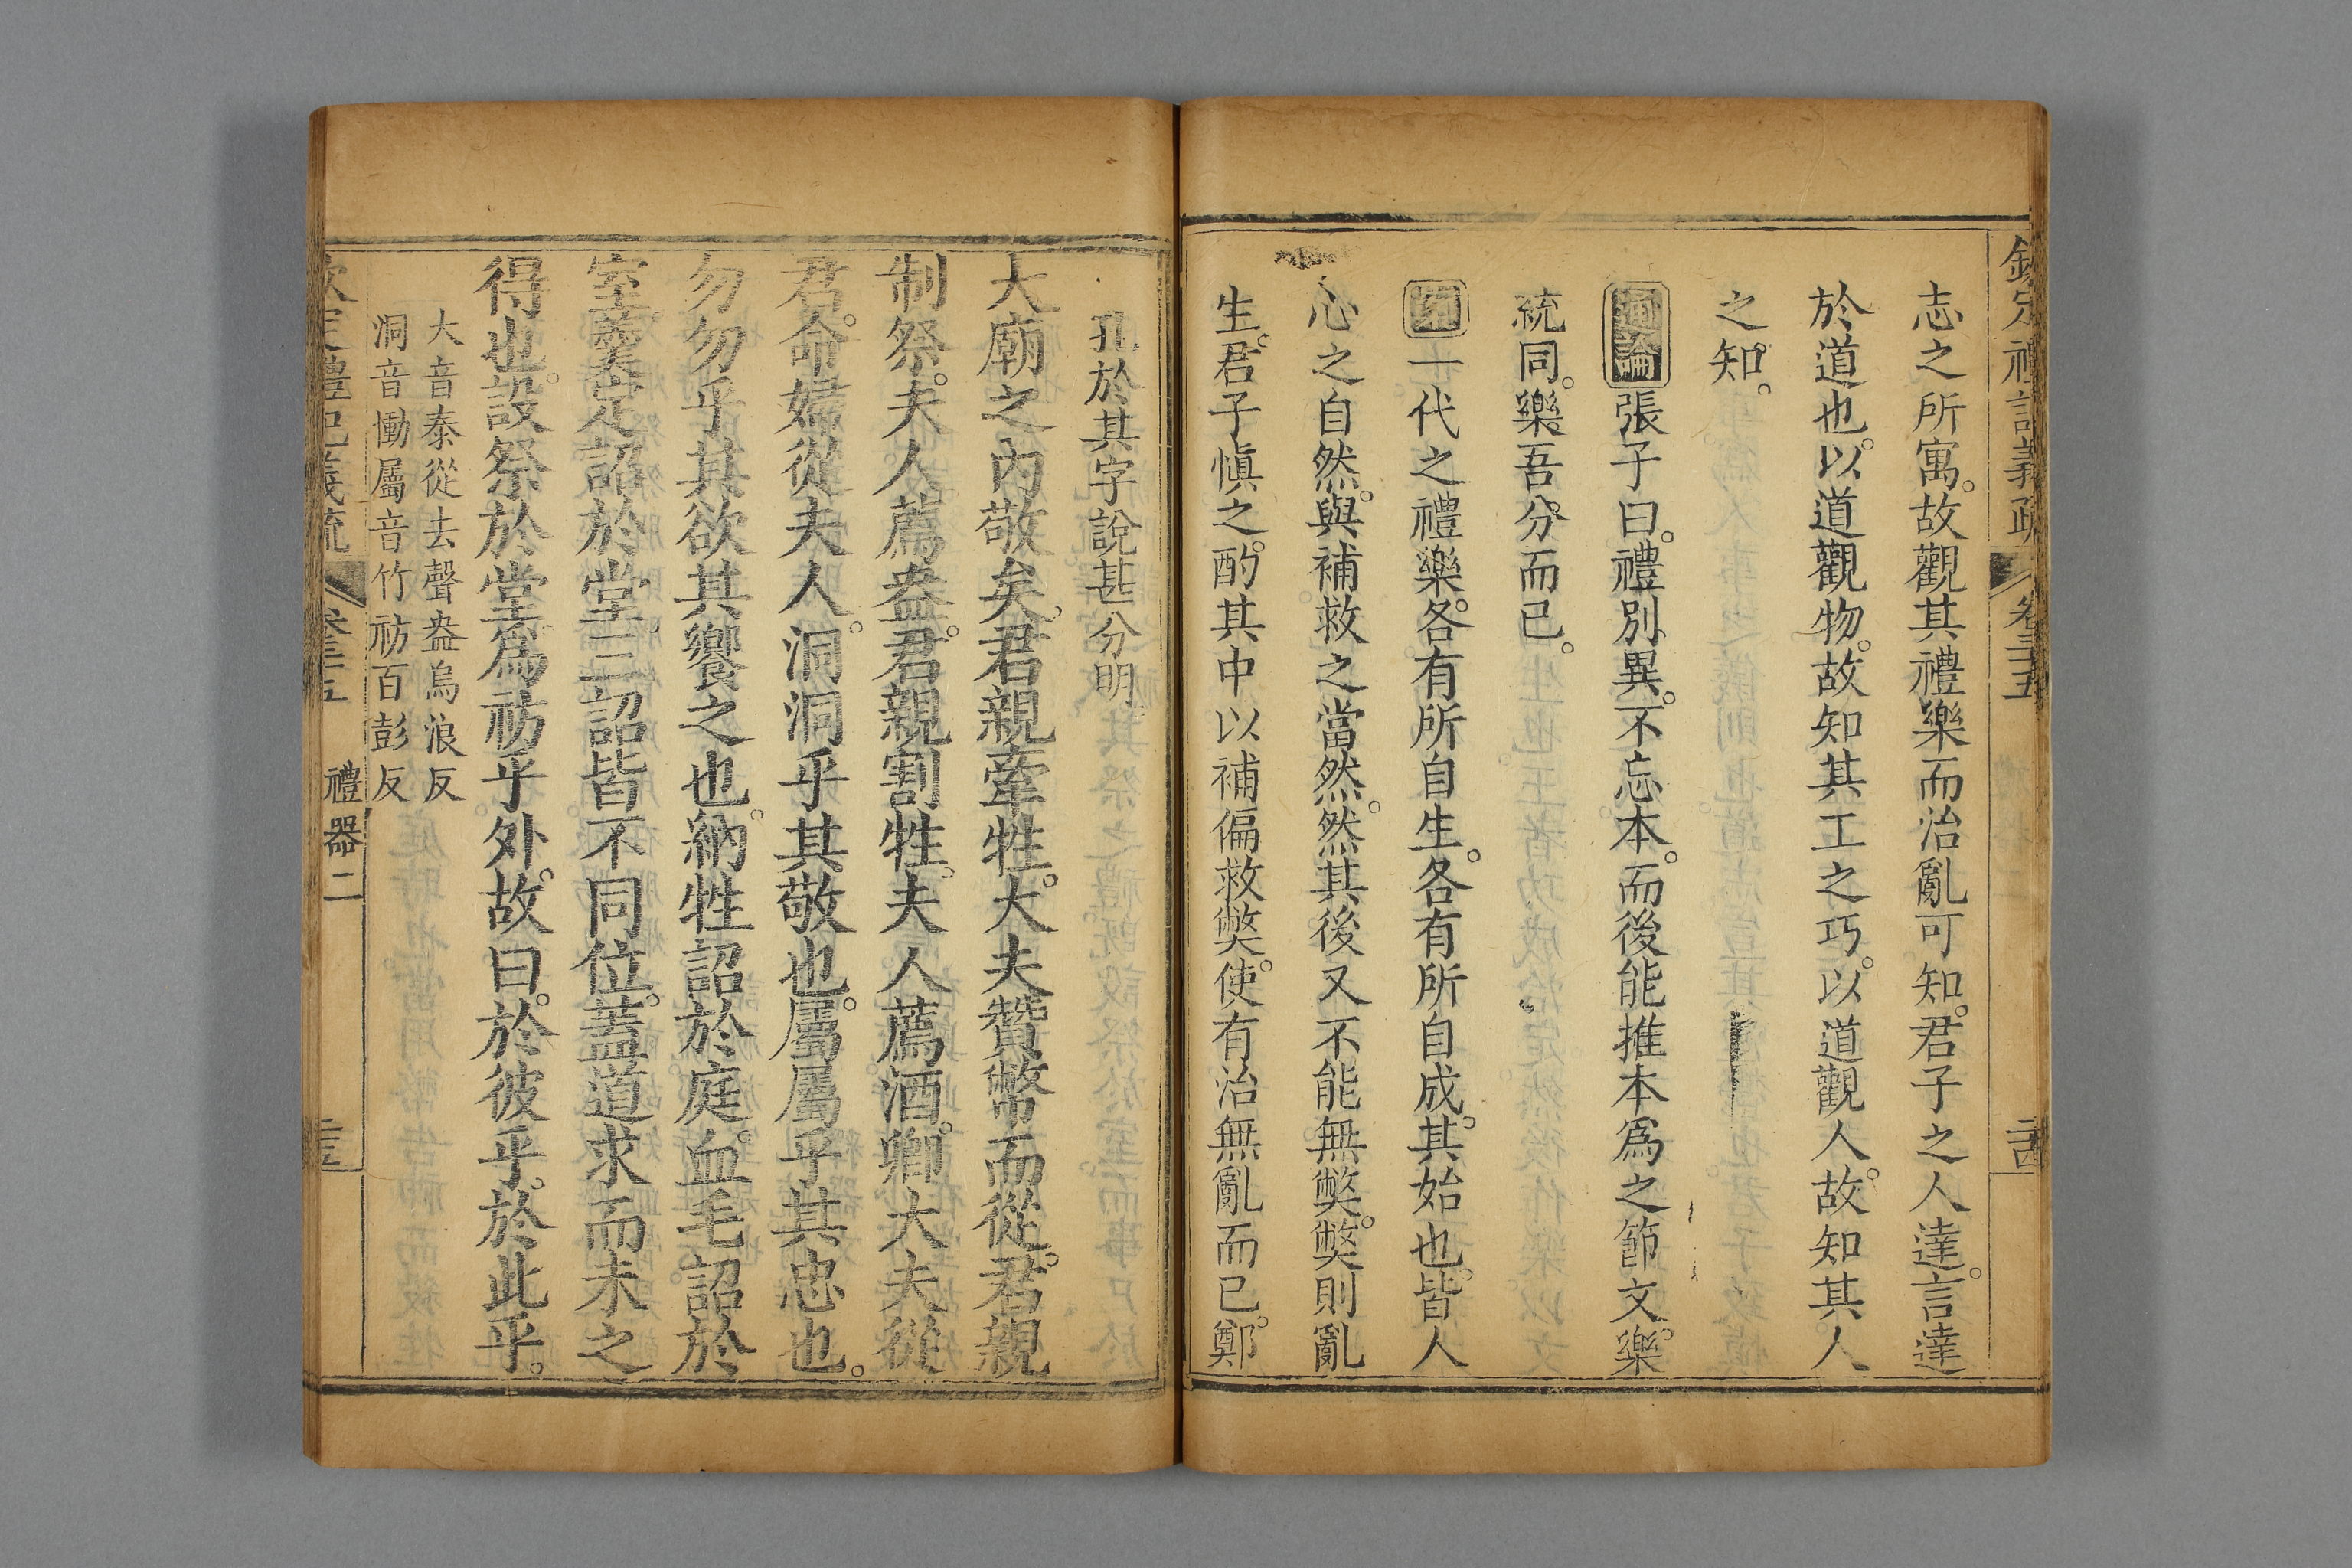 欽定禮記義疏 卷三十五 二十四
志之所寓。故觀其禮樂而治亂可知。君子之人達。言達
於道也。以道觀物。故知其工之巧。以道觀人。故知其人
之知。
通論 張子曰。禮別異。不忘本。而後能推本爲之節文。樂
統同。樂吾分而已。
案 一代之禮樂。各有所自生。各有所自成。其始也。皆人
心之自然。與補救之當然。然其後又不能無弊。弊則亂
生。君子愼之。酌其中以補偏救弊。使有治無亂而已。鄭
孔於其字說甚分明
大廟之內敬矣。君親牽牲。大夫贊幣而從。君親
制祭。夫人薦盎。君親割牲。夫人薦酒。卿大夫從
君。命婦從夫人。洞洞乎其敬也。屬屬乎其忠也。
勿勿乎其欲其饗之也。納牲詔於庭。血毛詔於
室。羹定詔於堂。三詔皆不同位。蓋道求而未之
得也。設祭於堂。爲祊乎外。故曰。於彼乎。於此乎。
大音泰從去聲盎烏浪反
洞音慟屬音竹祊百彭反
欽定禮記義疏 卷三十五 禮器二 二十五